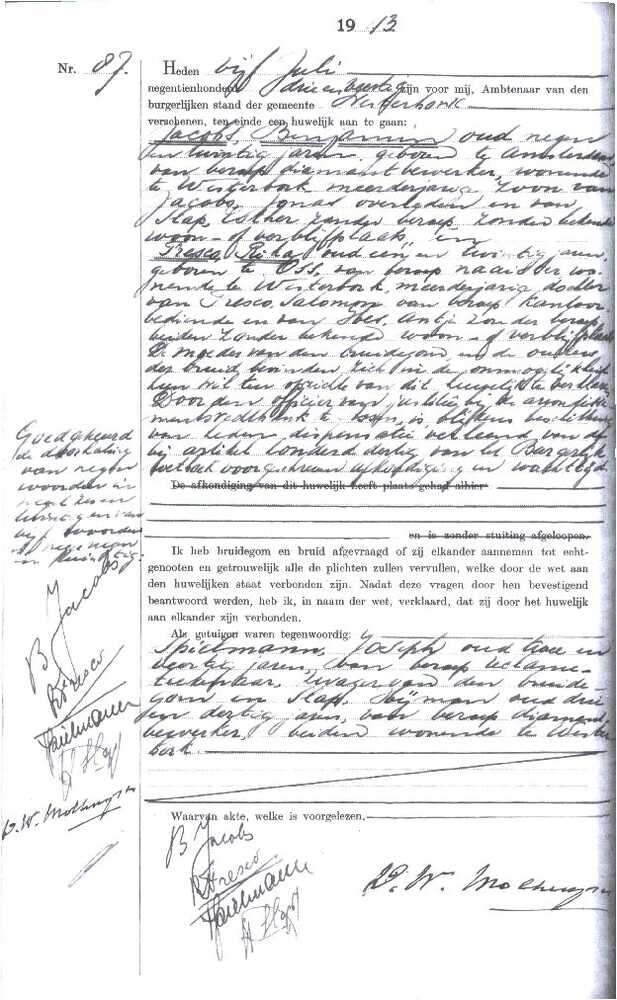 19 43
Nr. 87.
Heden vijf Juli
negentienhonderd drie en veertig zijn voor mij, Ambtenaar van den
burgerlijken stand der gemeente Westerbork
verschenen, ten einde een huwelijk aan te gaan:
Jacobs, Benjamin oud negen
en twintig jaren, geboren te Amsterdam
van beroep diamantbewerker, wonende
te Westerbork, meerderjarig, zoon van
Jacobs, Jonas overleden en van
Slap, Esther zonder beroep zonder bekende
woon- of verblijfplaats, en
Fresco, oud een en twintig jaren,
geboren te Oss, van beroep naaister wo-
nende te Westerbork, meerderjarig dochter
van Fresco, Salomon van beroep kantoor-
bediende en van Antje zonder beroep,
beiden zonder bekende woon- of verblijfplaats
De moeder van den bruidegom en de ouders
der bruid bevinden zich in de onmogelijkheid
hun wil ten opzichte van dit huwelijk te verklaren
Door den officier van justitie bij de arrondisse-
mentsrechtbank te Assen, is blijkens beschikking
van heden, dispensatie verleend van de
bij artikel honderd dertig van het Burgerlijk
Wetboek voorgeschreven afkondiging en wachttijd
De afkondiging van dit huwelijk heeft plaats gehad alhier
en is zonder stuiting afgeloopen.
Goedgekeurd
de doorhaling
van negen
woorden in
regel zes en
twintig en van
vijf woorden
in regel negen
en twintig.
B Jacobs
R Fresco
J Spielmann
H Slap
Ik heb bruidegom en bruid afgevraagd of zij elkander aannemen tot echt-
genooten en getrouwelijk alle de plichten zullen vervullen, welke door de wet aan
den huwelijken staat verbonden zijn. Nadat deze vragen door hen bevestigend
beantwoord werden, heb ik, in naam der wet, verklaard, dat zij door het huwelijk
aan elkander zijn verbonden.
Als getuigen waren tegenwoordig:
Spielmann, Joseph oud twee en
veertig jaren, van beroep reclame-
teekenaar, zwager van den bruide-
gom en Slap, Hijman oud drie
en dertig jaren, van beroep diamant-
bewerker, beiden wonende te Wester
bork.
Waarvan akte, welke is voorgelezen.
B Jacobs
R Fresco
J Spielmann
H Slap